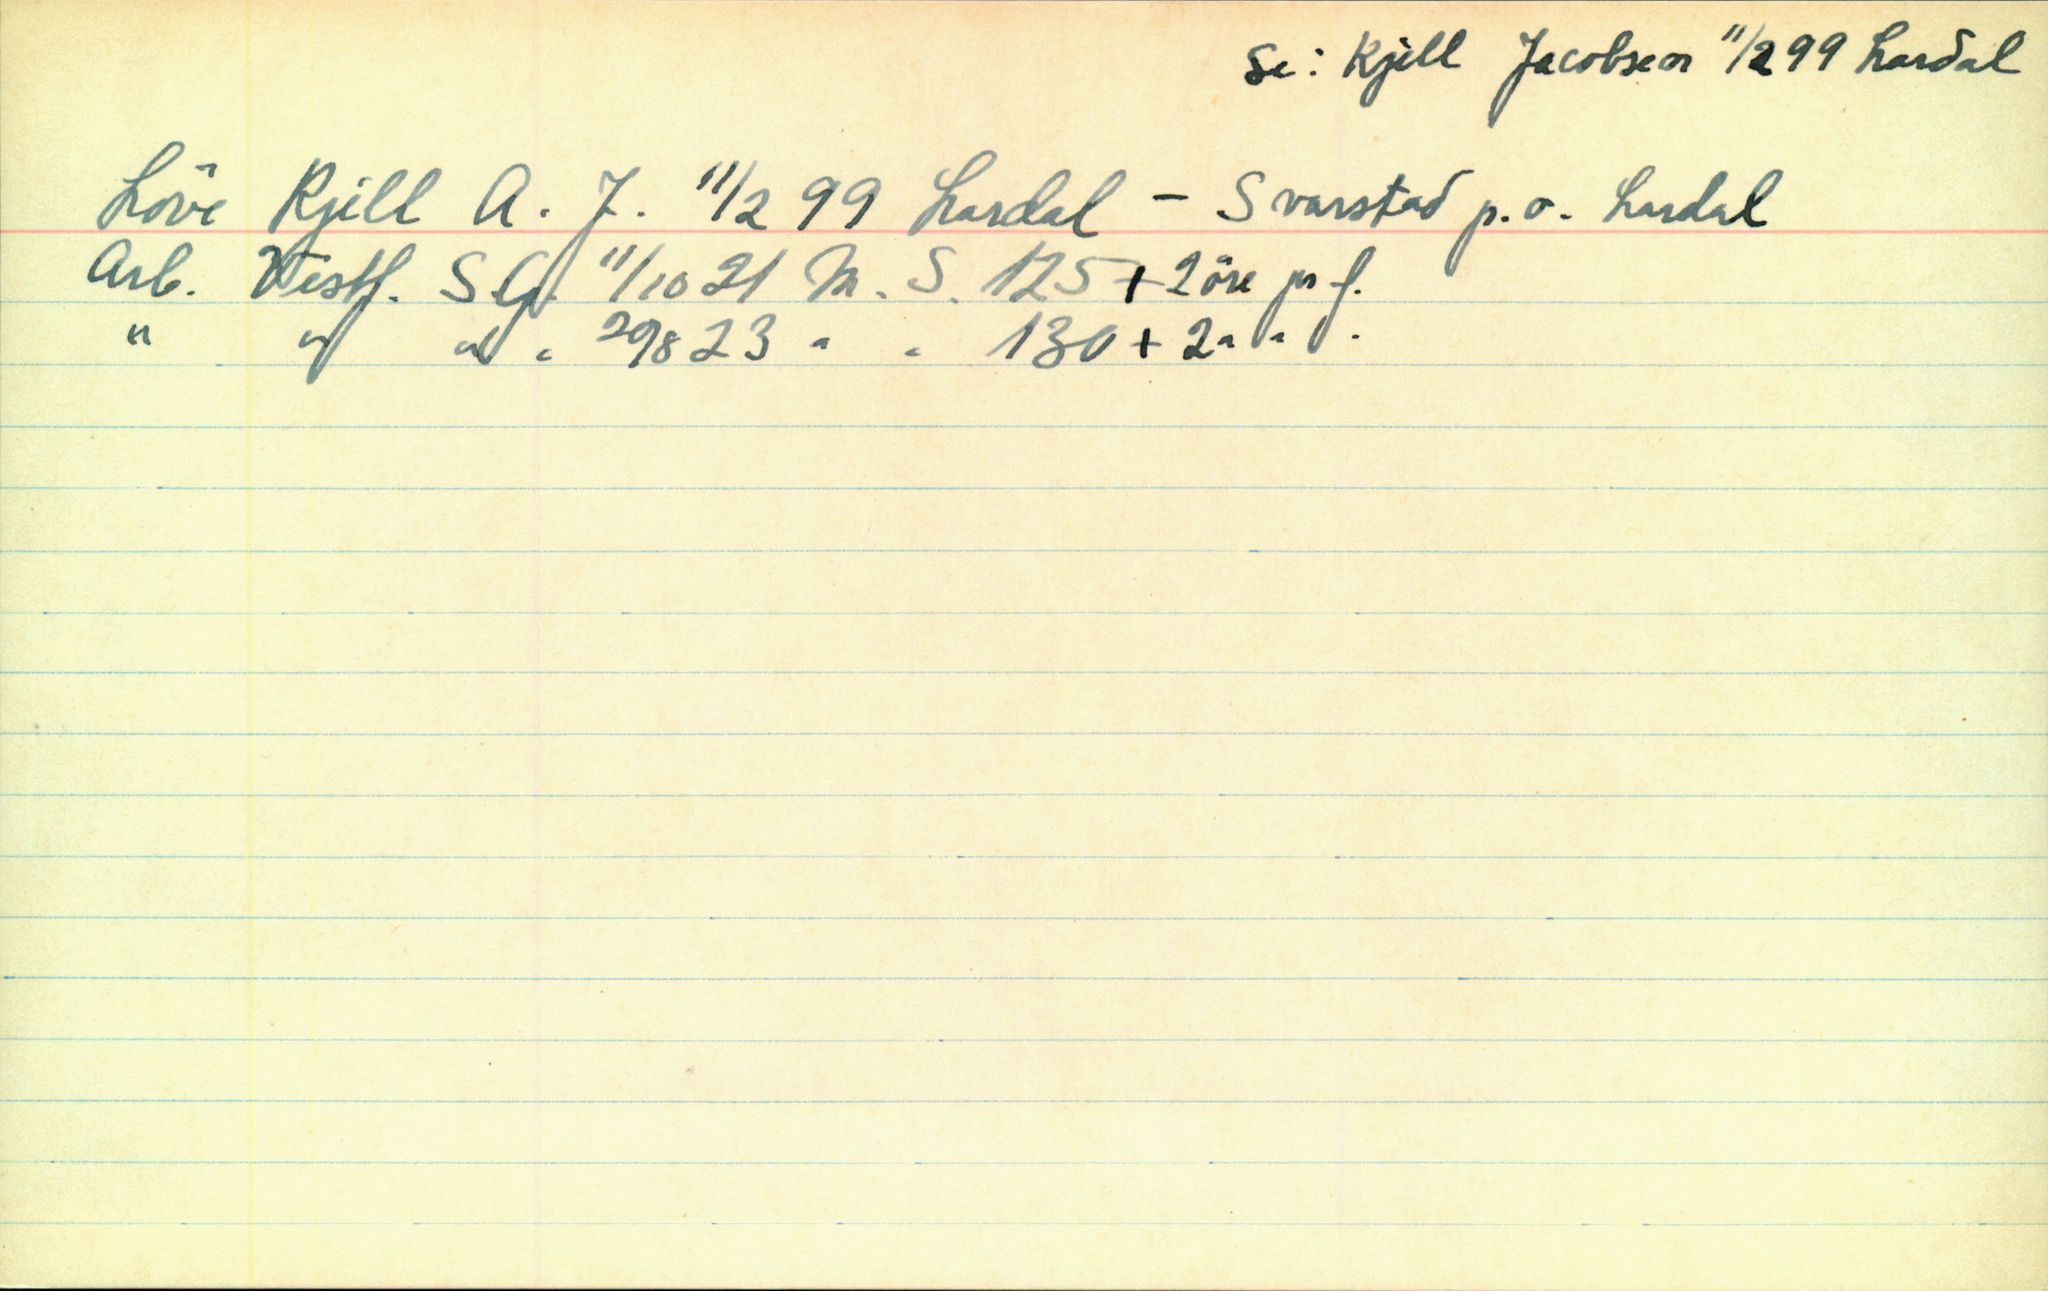 Se: Kjell Jacobsen 11/2 99 Lardal
Löve Kjell A. J. 11/2 99 Lardal - Svarstad p.o. Lardal
Arb. Vestf. S G. 11/10 21 M. S. 125 + 2 öre pr f.
" " " " 29/8 23 " " 130 + 2 " " "